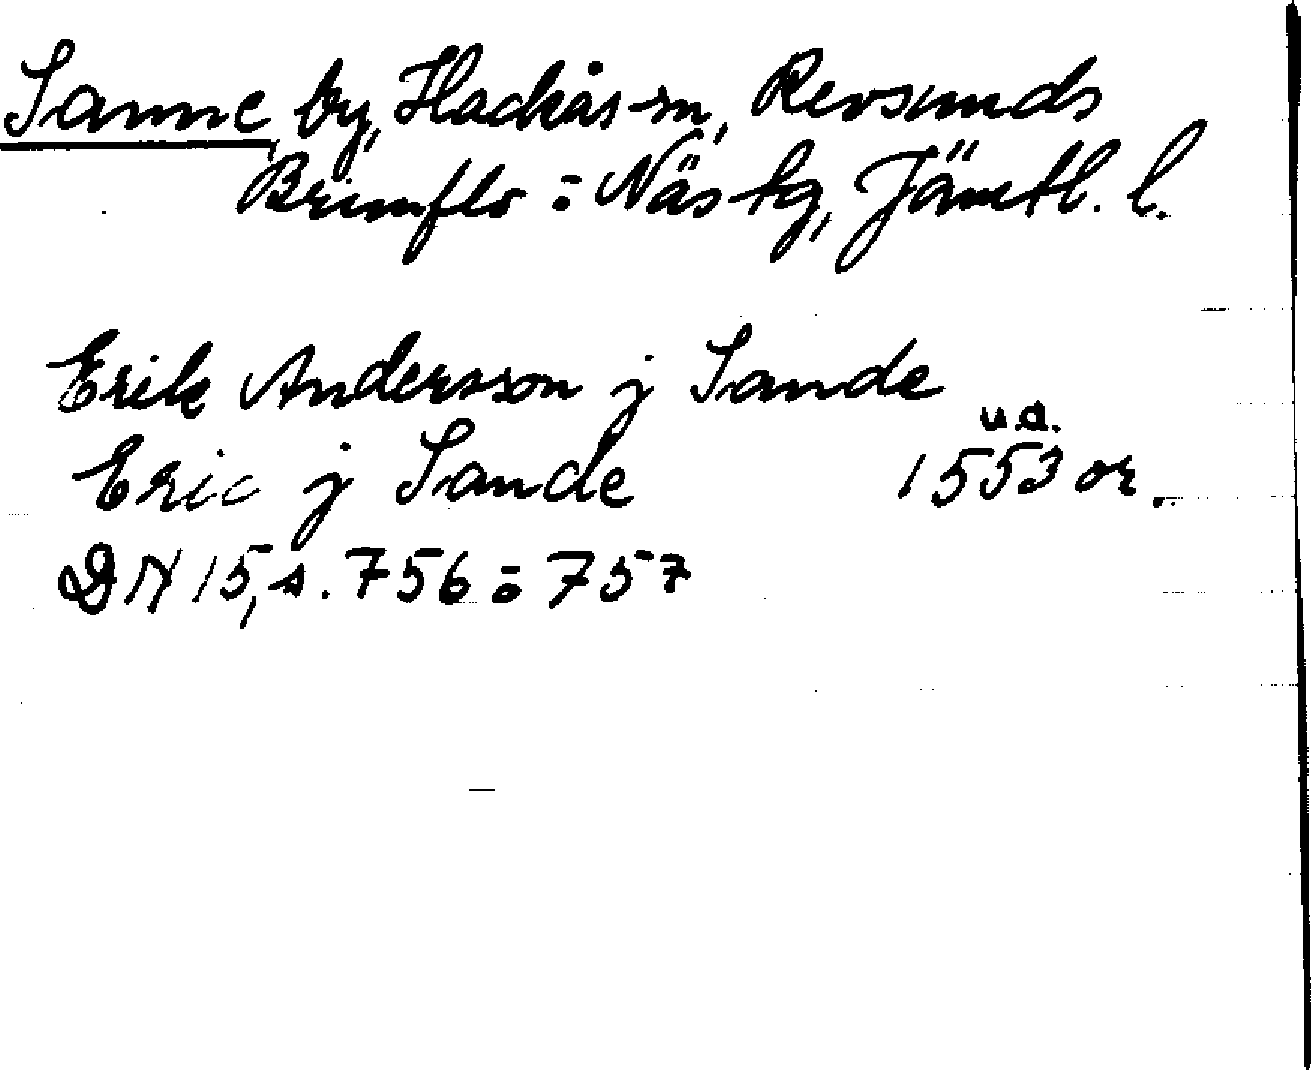 Sanne, by, Hackås sn, Revsunds
Brunflo = Näs tg, Jämtl. l.
Erik Andersson j Sande
u.d.
Eric j Sande 1553 or.
DN 15, s. 756 = 757